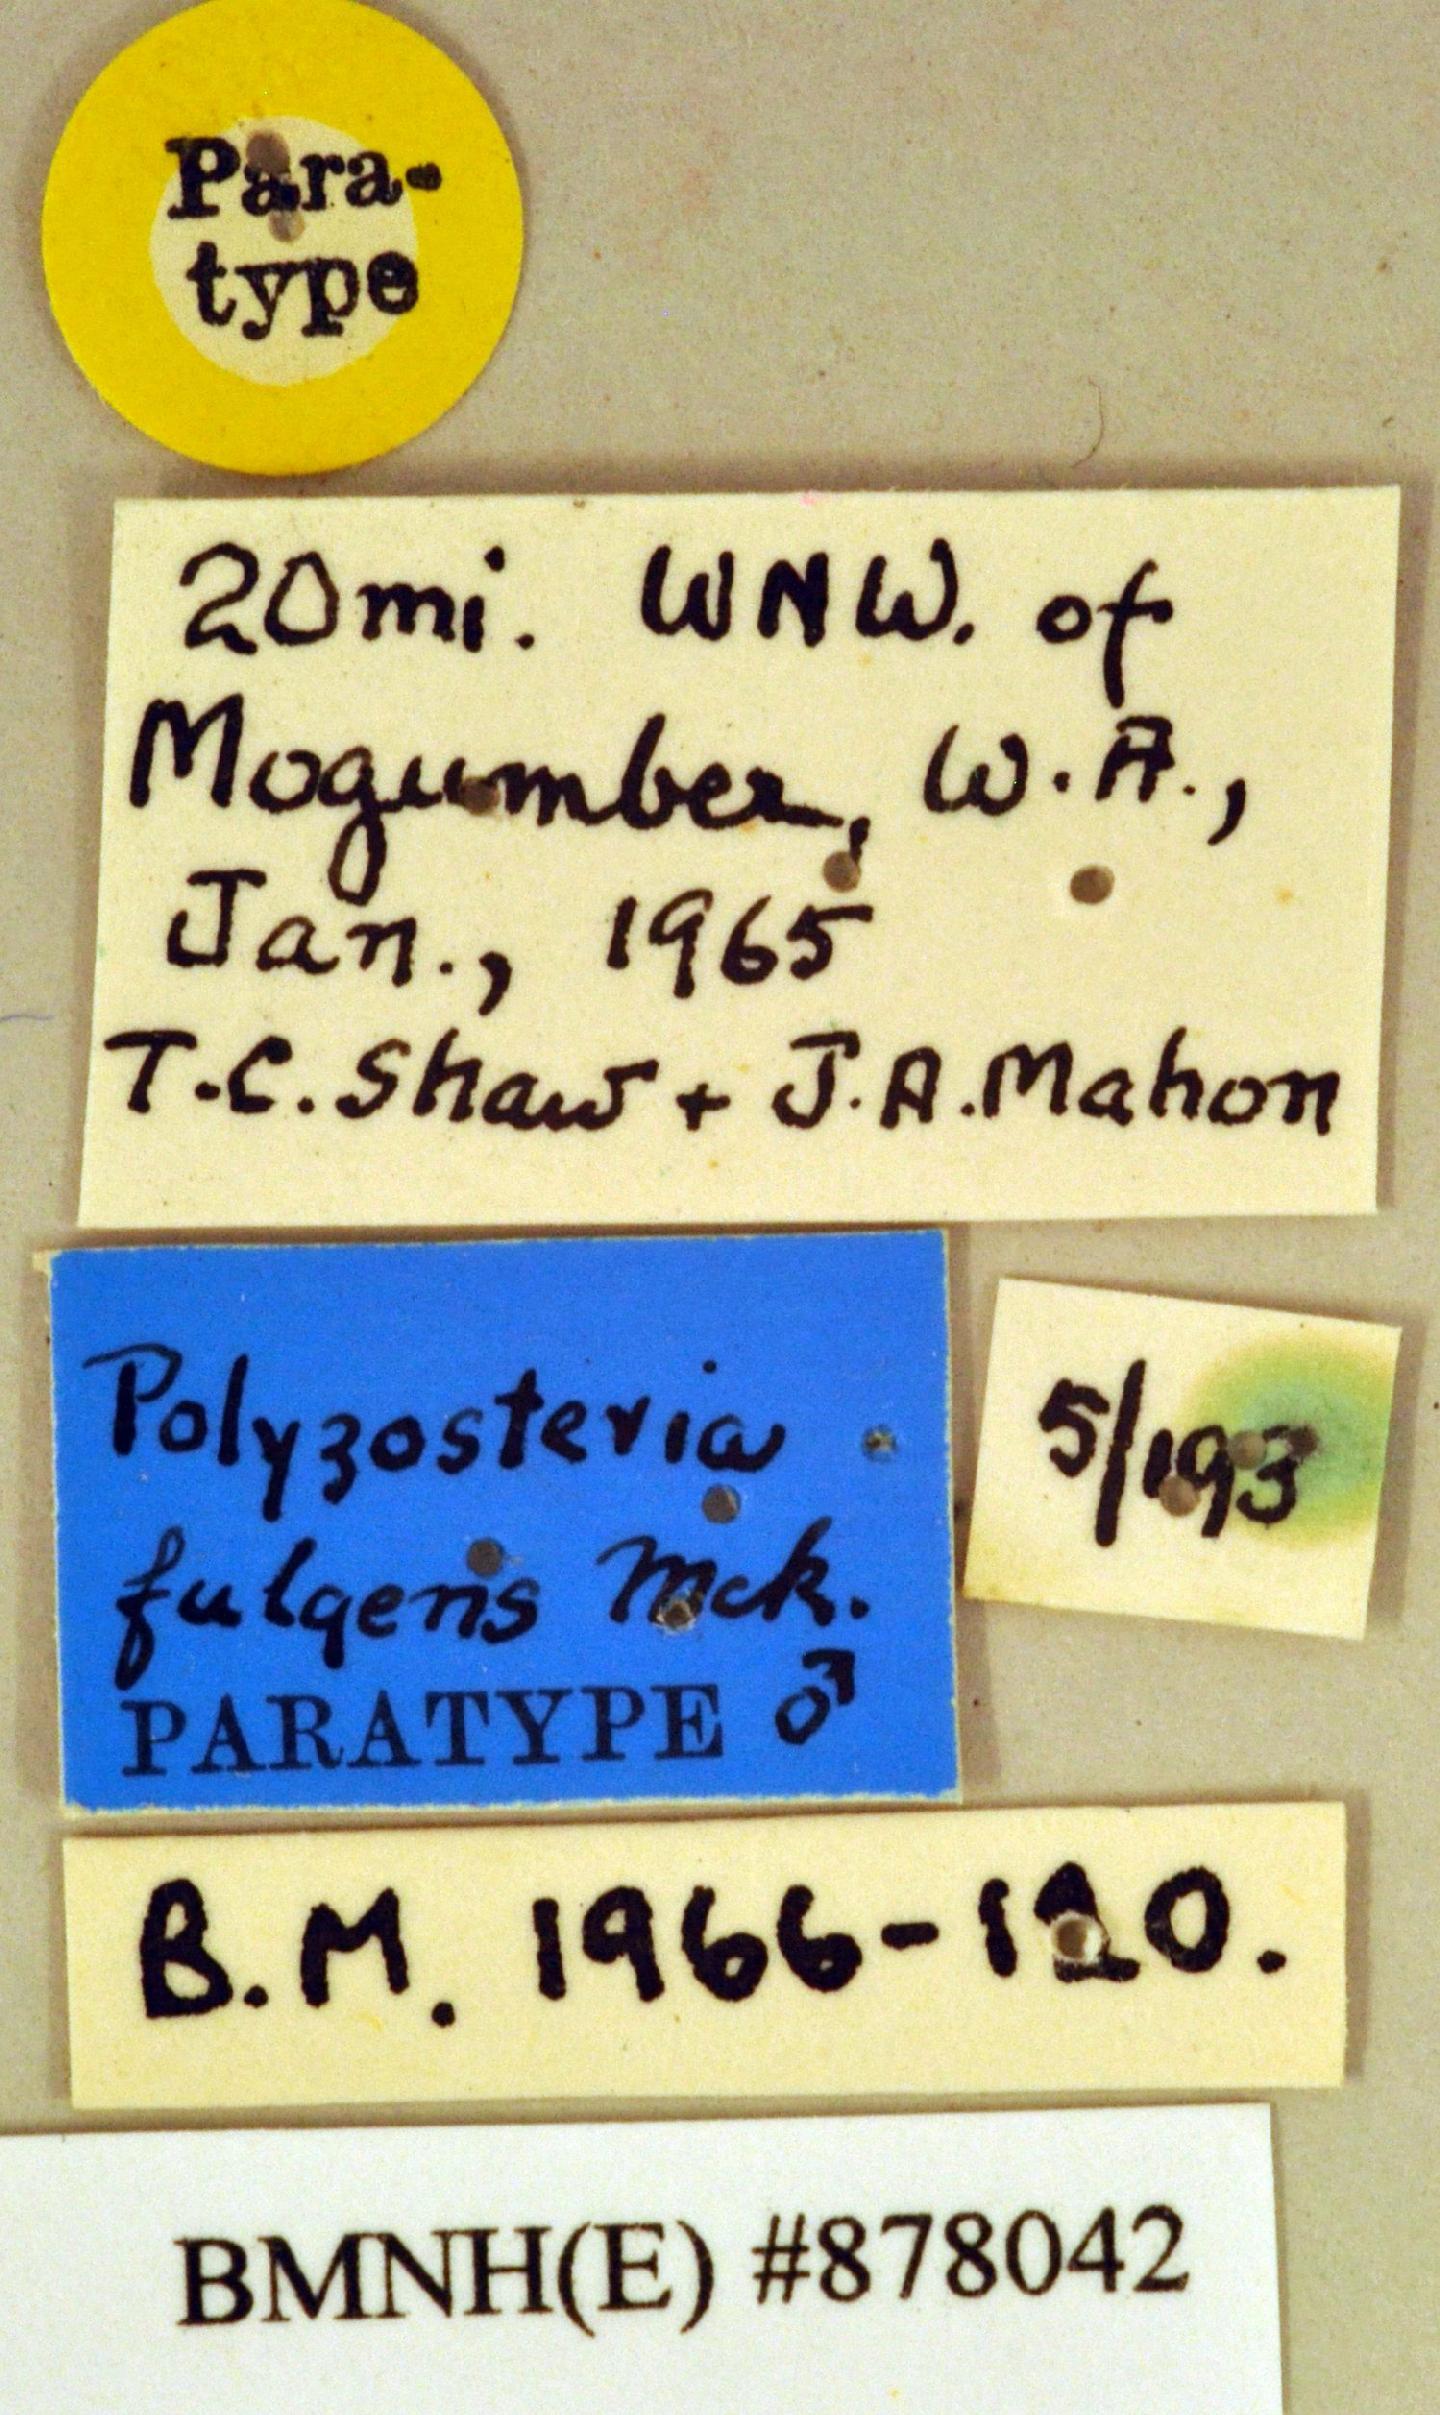 Para-
type
20mi. WNW. of
Mogumber, W.A.,
Jan., 1965
T.C. Shaw + J.A. Mahon
Polyzosteria
fulgens Mck.
PARATYPE ♂
5/193
B.M. 1966-120.
BMNH(E) #878042